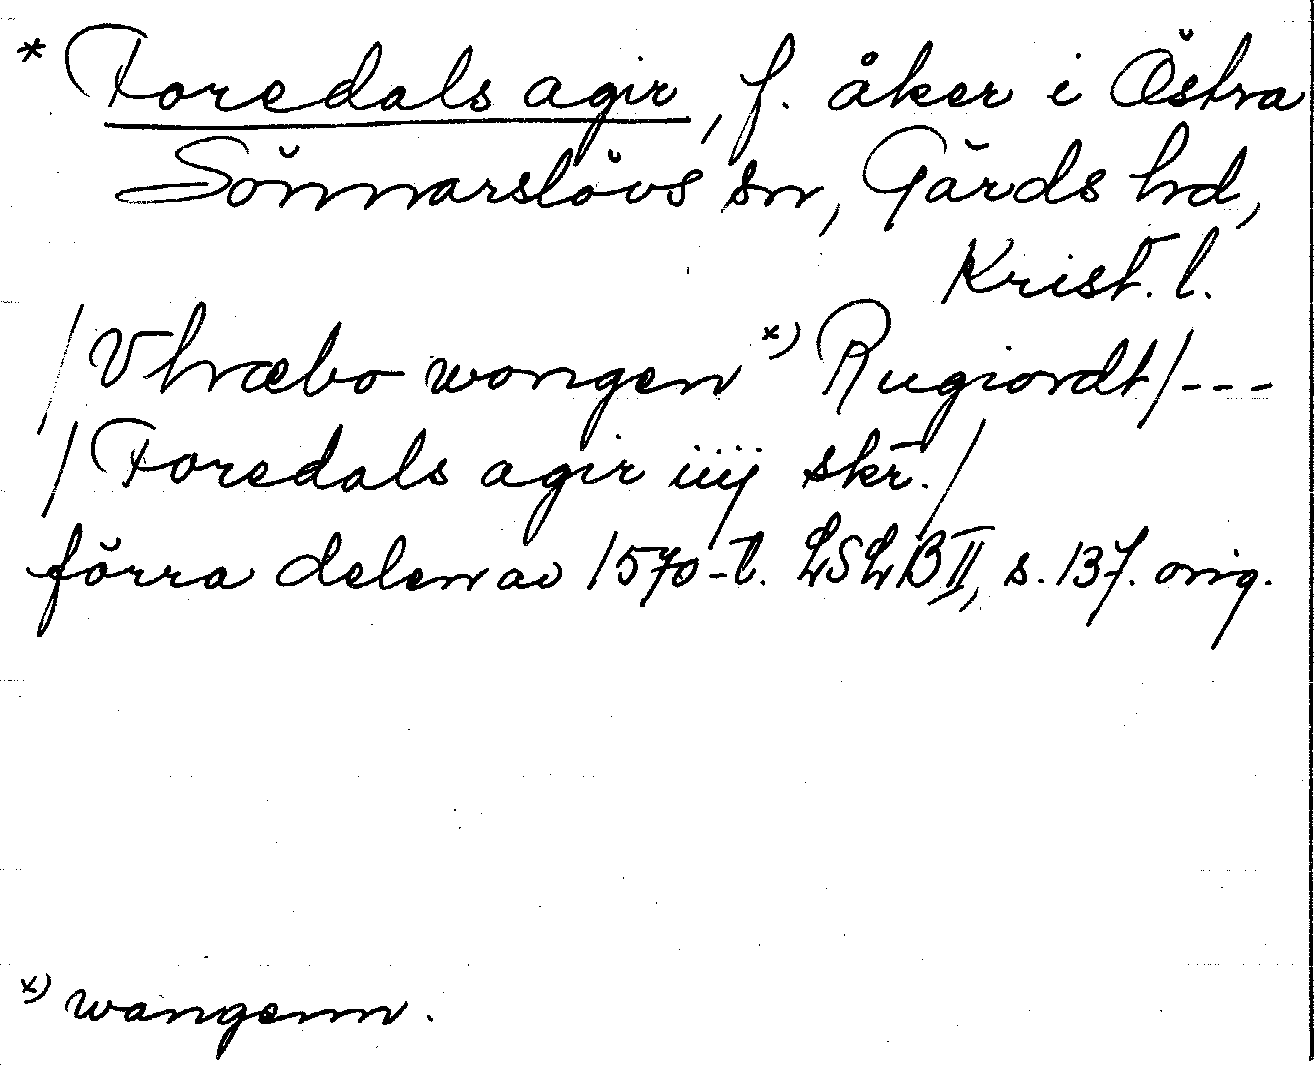 * Foredals agir, f. åker i Östra
Sönnarslövs sn, Gärds hd,
Krist. l.
/Vhræbo wongen x) Rugiordt/---
/Foredals agir iiij skr./
förra delen av 1570-t. LSLB II, s. 137. orig.
x) wangenn.